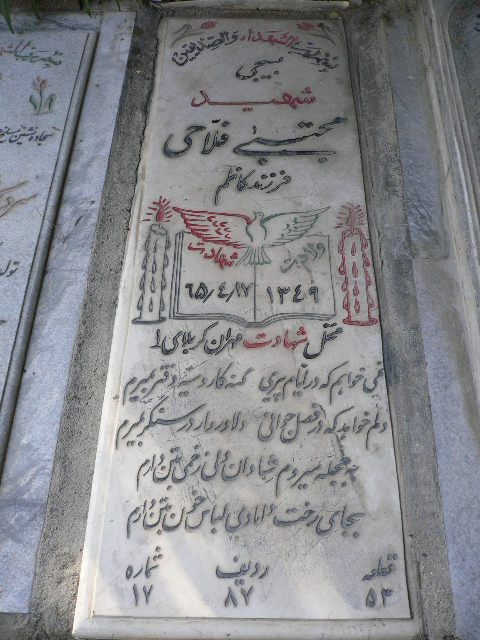 بسم رب الشهداء والصدیقین
بسیجی
شهید
مجتبی فلاحی
فرزند کاظم
ولادت شهادت
۱۳۴۹ ۶۵/۴/۱۷
محل شهادت مهران کربلای ۱
نمی خواهم که در ایام پیری گنه کار و سیه دفتر بمیرم
دلم خواهد که در فصل جوانی دلاور وار در سنگر بمیرم
به حجله میروم شادان ولی زخمی بتن دارم
بجای رخت دامادی لباس خون بتن دارم
قطعه ردیف شماره
۵۳ ۸۷ ۱۷